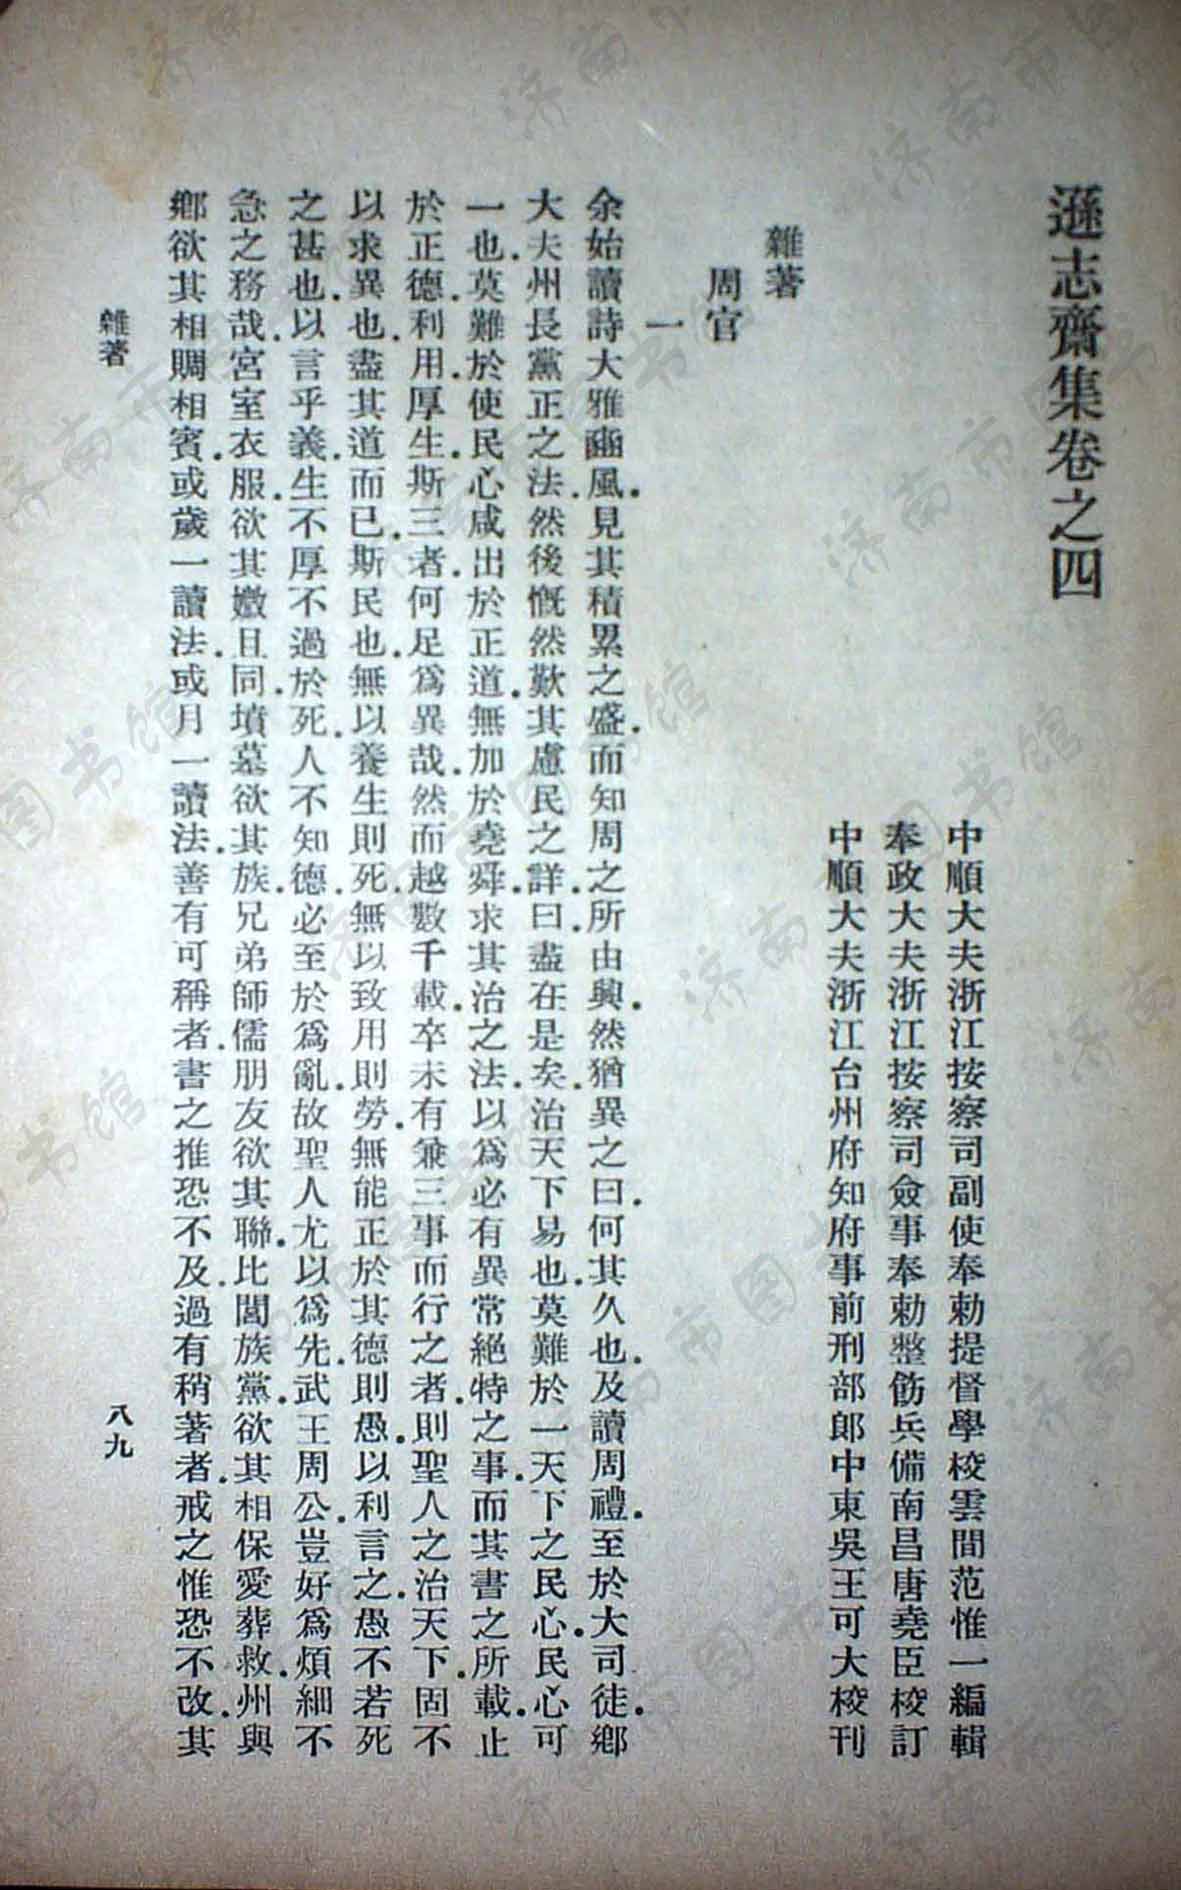 遜志齋集卷之四
中順大夫浙江按察司副使奉勅提督學校雲間范惟一編輯
奉政大夫浙江按察司僉事奉勅整飭兵備南昌唐堯臣校訂
中順大夫浙江台州府知府事前刑部郎中東吳王可大校刊
雜著
周官
一
余始讀詩大雅豳風.見其積累之盛.而知周之所由興.然猶異之曰.何其久也.及讀周禮.至於大司徒.鄉
大夫州長黨正之法.然後慨然歎其慮民之詳.曰.盡在是矣.治天下易也.莫難於一天下之民心.民心可
一也.莫難於使民心咸出於正道.無加於堯舜.求其治之法.以為必有異常絕特之事.而其書之所載.止
於正德.利用.厚生.斯三者.何足為異哉.然而越數千載.卒未有兼三事而行之者.則聖人之治天下.固不
以求異也.盡其道而已.斯民也.無以養生則死.無以致用則勞.無能正於其德則愚.以利言之.愚不若死
之甚也.以言乎義.生不厚不過於死.人不知德.必至於為亂.故聖人尤以為先.武王周公.豈好為煩細不
急之務哉.宮室衣服.欲其媺且同.墳墓欲其族.兄弟師儒朋友欲其聯.比閭族黨.欲其相保愛葬救.州與
鄉欲其相賙相賓.或歲一讀法.或月一讀法.善有可稱者.書之推恐不及.過有稍著者.戒之惟恐不改.其
雜著
八九
济南市图书馆